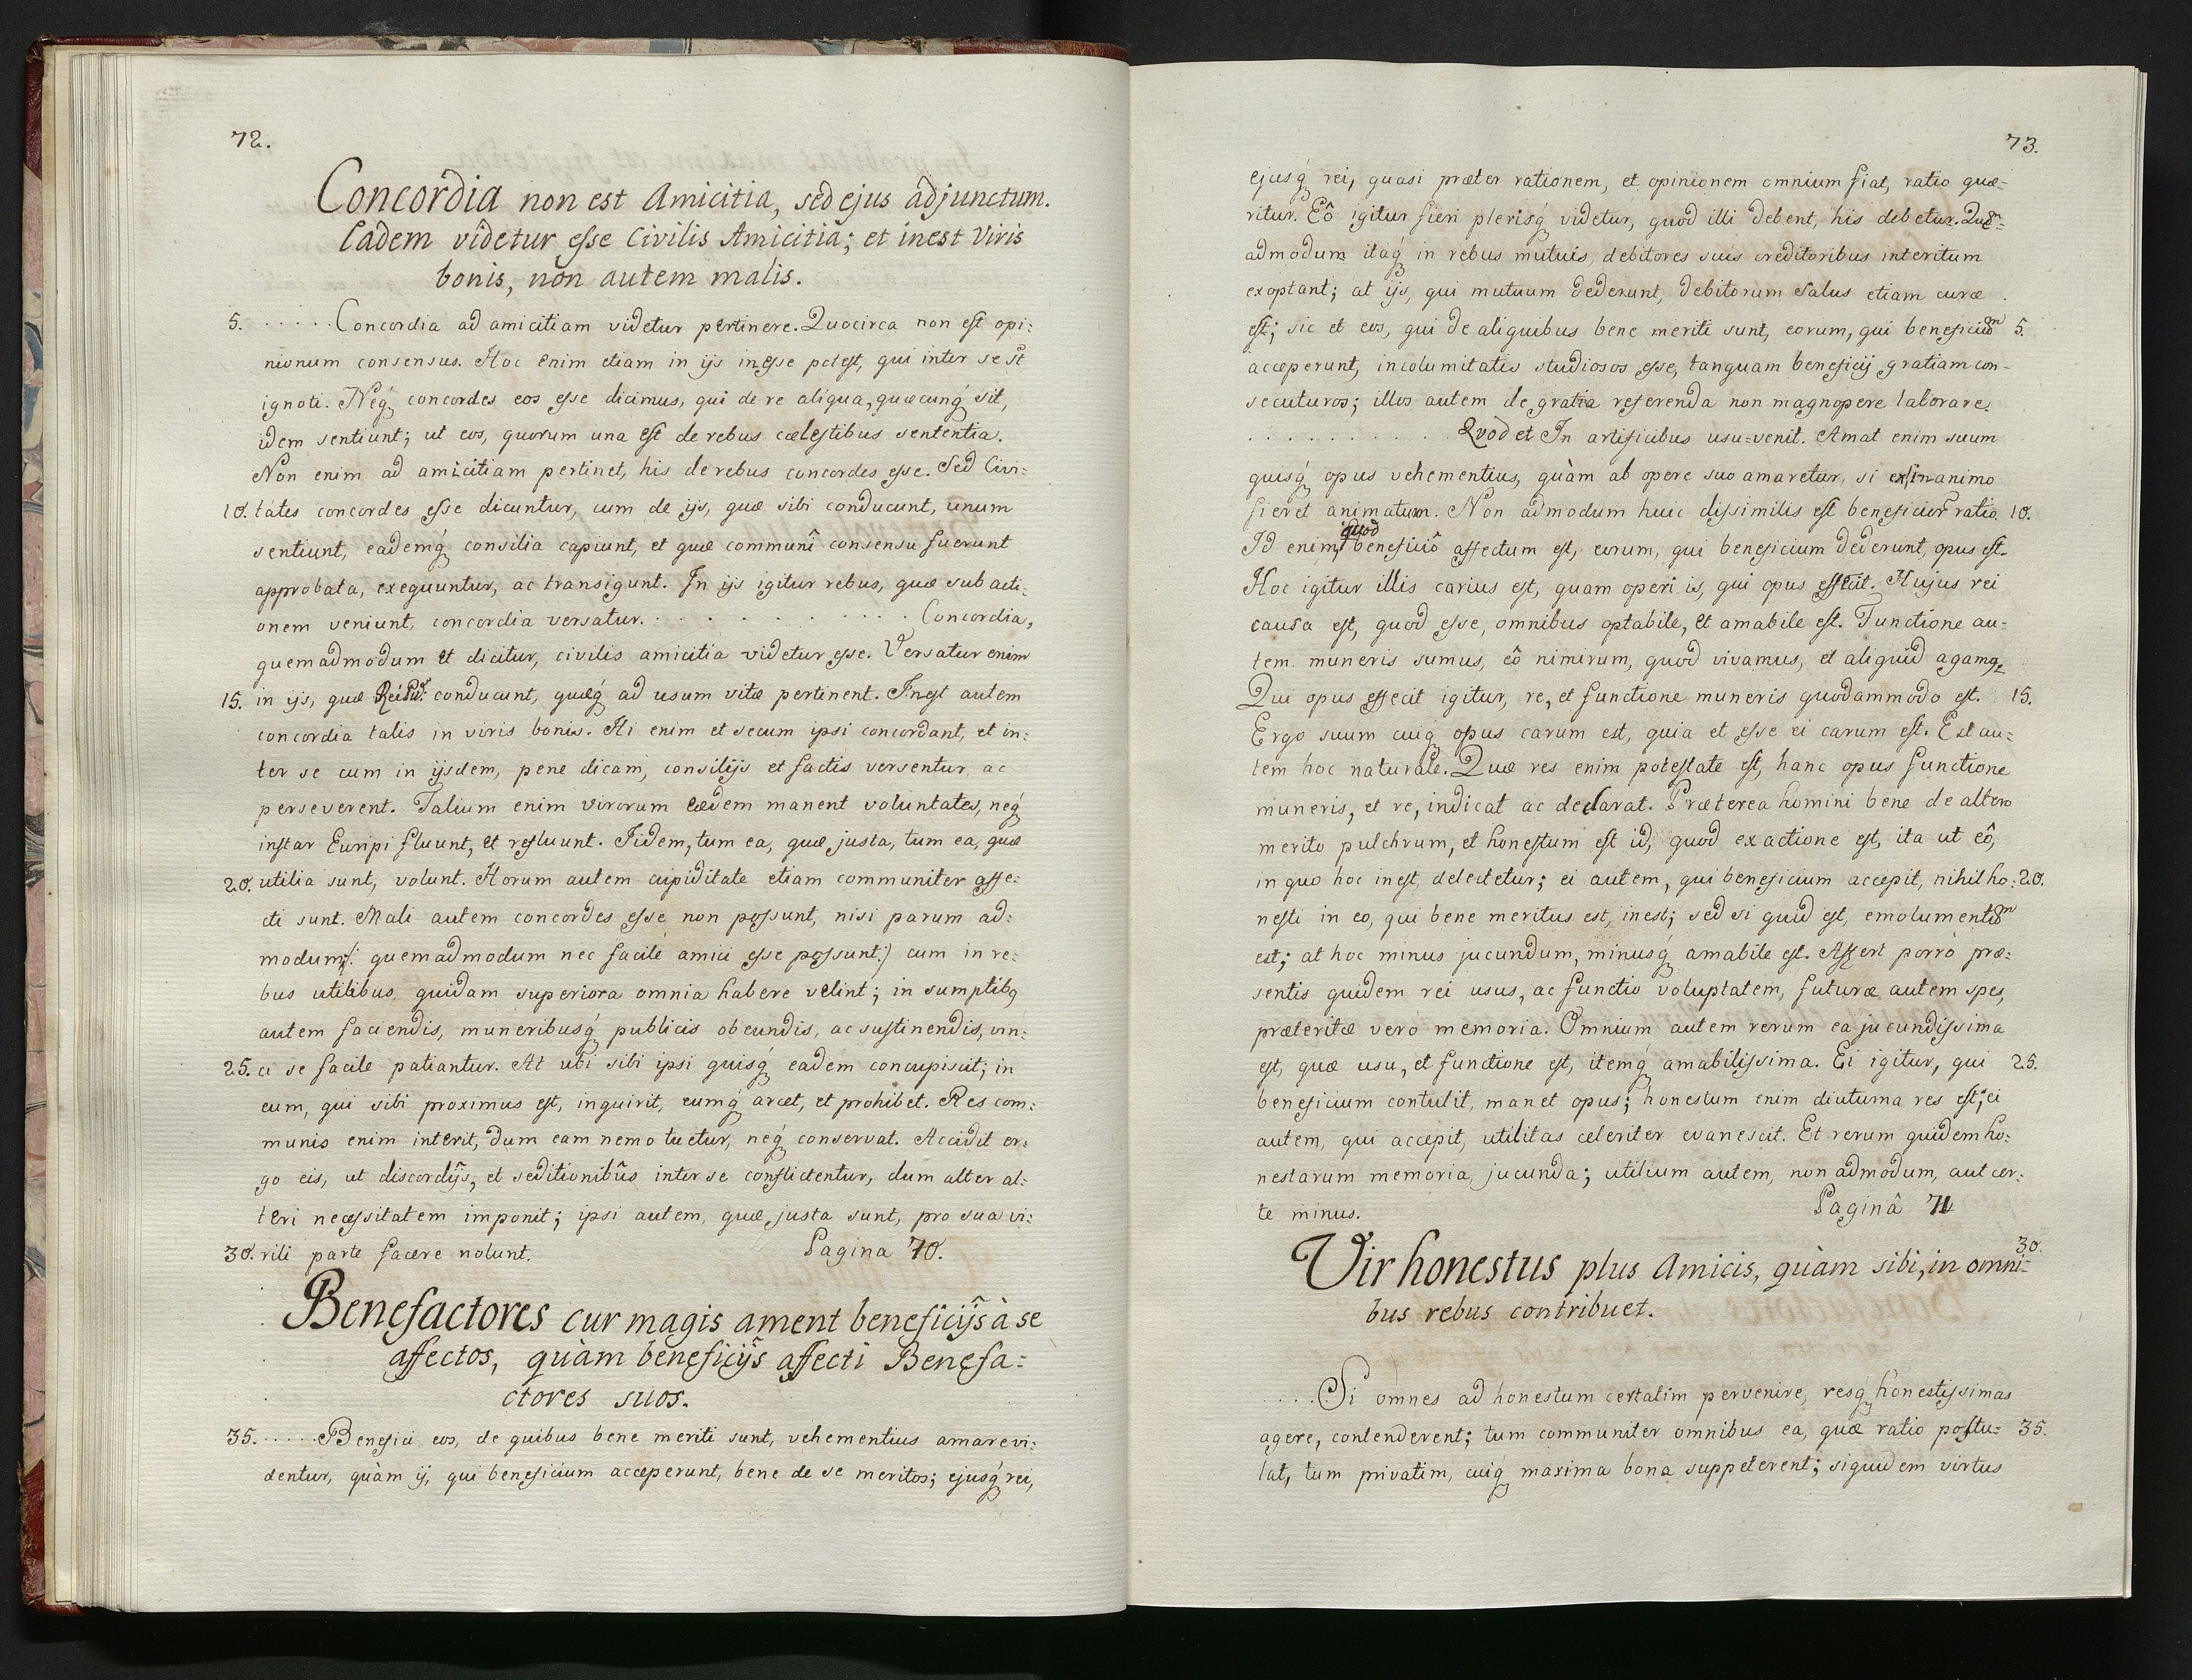 72.
Concordia non est Amicitia, sed ejus adjunctum.
Eadem videtur esse Civilis Amicitia; et inest Viris
bonis, non autem malis.
5. ..... Concordia ad amicitiam videtur pertinere. Quocirca non est opi:
nionum consensus. Hoc enim etiam in ijs inesse potest, qui inter se st
ignoti. Neq́ concordes eos esse dicimus, qui de re aliqua, quæcunq́ sit,
idem sentiunt; ut eos, quorum una est de rebus cælestibus sententia.
Non enim ad amicitiam pertinet, his de rebus concordes esse. Sed Civi:
10. tates concordes esse dicuntur, cum de ijs, quæ sibi conducunt, unum
sentiunt, eademq́ consilia capiunt, et quæ communî consensu fuerunt
approbata, exequuntur, ac transigunt. In ijs igitur rebus, quæ sub acti:
onem veniunt, concordia versatur. . . . . . . . . . . Concordia,
quemadmodum et dicitur, civilis amicitia videtur esse. Versatur enim
15. in ijs, quæ conducunt, quæq́ ad usum vitæ pertinent. Inest autem
concordia talis in viris bonis. Hi enim et secum ipsi concordant, et in:
ter se cum in ijsdem, pene dicam, consilijs et factis versentur, ac
perseverent. Talium enim virorum eædem manent voluntates, neq́
instar Euripi fluunt, et refluunt. Iidem, tum ea, quæ justa, tum ea, quæ
20. utilia sunt, volunt. Horum autem cupiditate etiam communiter affe:
cti sunt. Mali autem concordes esse non possunt, nisi parum ad:
modum/: quemadmodum nec facilè amici esse possunt:/ cum in re:
bus utilibus quidam superiora omnia habere velint; in sumptibq
autem faciendis, muneribusq́ publicis obeundis, ac sustinendis, vin:
25. ci se facile patiantur. At ubi sibi ipsi quisq́ eadem concupiscit; in
eum, qui sibi proximus est, inquirit, eumq́ arcet, et prohibet. Res com:
munis enim interit, dum eam nemo tuetur, neq́ conservat. Accidit er:
go eis, ut discordijs, et seditionibus inter se conflictentur, dum alter al:
teri necessitatem imponit; ipsi autem, quæ justa sunt, pro sua vi:
30. rili parte facere nolunt. Pagina 70.
Benefactores cur magis ament beneficijs à se
affectos, quàm beneficijs affecti Benefa:
ctores suos.
35. ..... Benefici eos, de quibus bene meriti sunt, vehementius amare vi:
dentur, quàm ij, qui beneficium acceperunt, bene de se meritos; ejusq́ rei,
73.
ejusq́ rei, quasi præter rationem, et opinionem omnium fiat, ratio quæ:
ritur. Eô igitur fieri plerisq́ videtur, quod illi debent, his debetur. Quē=
admodum itaq́ in rebus mutuis, debitores suis creditoribus interitum
exoptant; at ijs, qui mutuum dederunt, debitorum salus etiam curæ
est; sic et eos, qui de aliquibus bene meriti sunt, eorum, qui beneficium 5.
acceperunt, incolumitatis studiosos esse, tanquam beneficij gratiam con-
secuturos; illos autem de gratia referenda non magnopere laborare.
. . . . . . . . . . Qvod et In artificibus usu-venit. Amat enim suum
quisq́ opus vehementius, quàm ab opere suo amaretur, si animo
fieret animatum. Non admodum huic dissimilis est beneficior ratio. 10.
Id enim, quod beneficiô affectum est, eorum, qui beneficium dederunt, opus est.
Hoc igitur illis carius est, quam operi is, qui opus effecit. Hujus rei
causa est, quod esse, omnibus optabile, et amabile est. Functione au-
tem muneris sumus, eô nimirum, quod vivamus, et aliquid agamq
Qui opus effecit igitur, re, et functione muneris quodammodo est. 15.
Ergo suum cuiq́ opus carum est, quia et esse ei carum est. Est au:
tem hoc naturale. Quæ res enim potestate est, hanc opus functione
muneris, et re, indicat ac declarat. Præterea homini bene de altero
merito pulchrum, et honestum est id, quod ex actione est, ita ut eô,
in quo hoc inest, delectetur; ei autem, qui beneficium accepit, nihil ho: 20.
nesti in eo, qui bene meritus est, inest; sed si quid est, emolumentum
est; at hoc minus jucundum, minusq́ amabile est. Affert porrò præ:
sentis quidem rei usus, ac functio voluptatem, futuræ autem spes,
præteritæ verò memoria. Omnium autem rerum ea jucundissima
est, quæ usu, et functione est, itemq́ amabilissima. Ei igitur, qui 25.
beneficium contulit, manet opus; honestum enim diuturna res est; ei
autem, qui accepit, utilitas celeriter evanescit. Et rerum quidem ho:
nestarum memoria, jucunda; utilium autem, non admodum, aut cer:
te minus. Paginâ 71
30.
Vir honestus plus Amicis, quàm sibi, in omni-
bus rebus contribuet.
.... Si omnes ad honestum certatim pervenire, resq́ honestissimas
agere, contenderent; tum communiter omnibus ea, quæ ratio postu= 35.
lat, tum privatim, cuiq́ maxima bona suppeterent; siquidem virtus